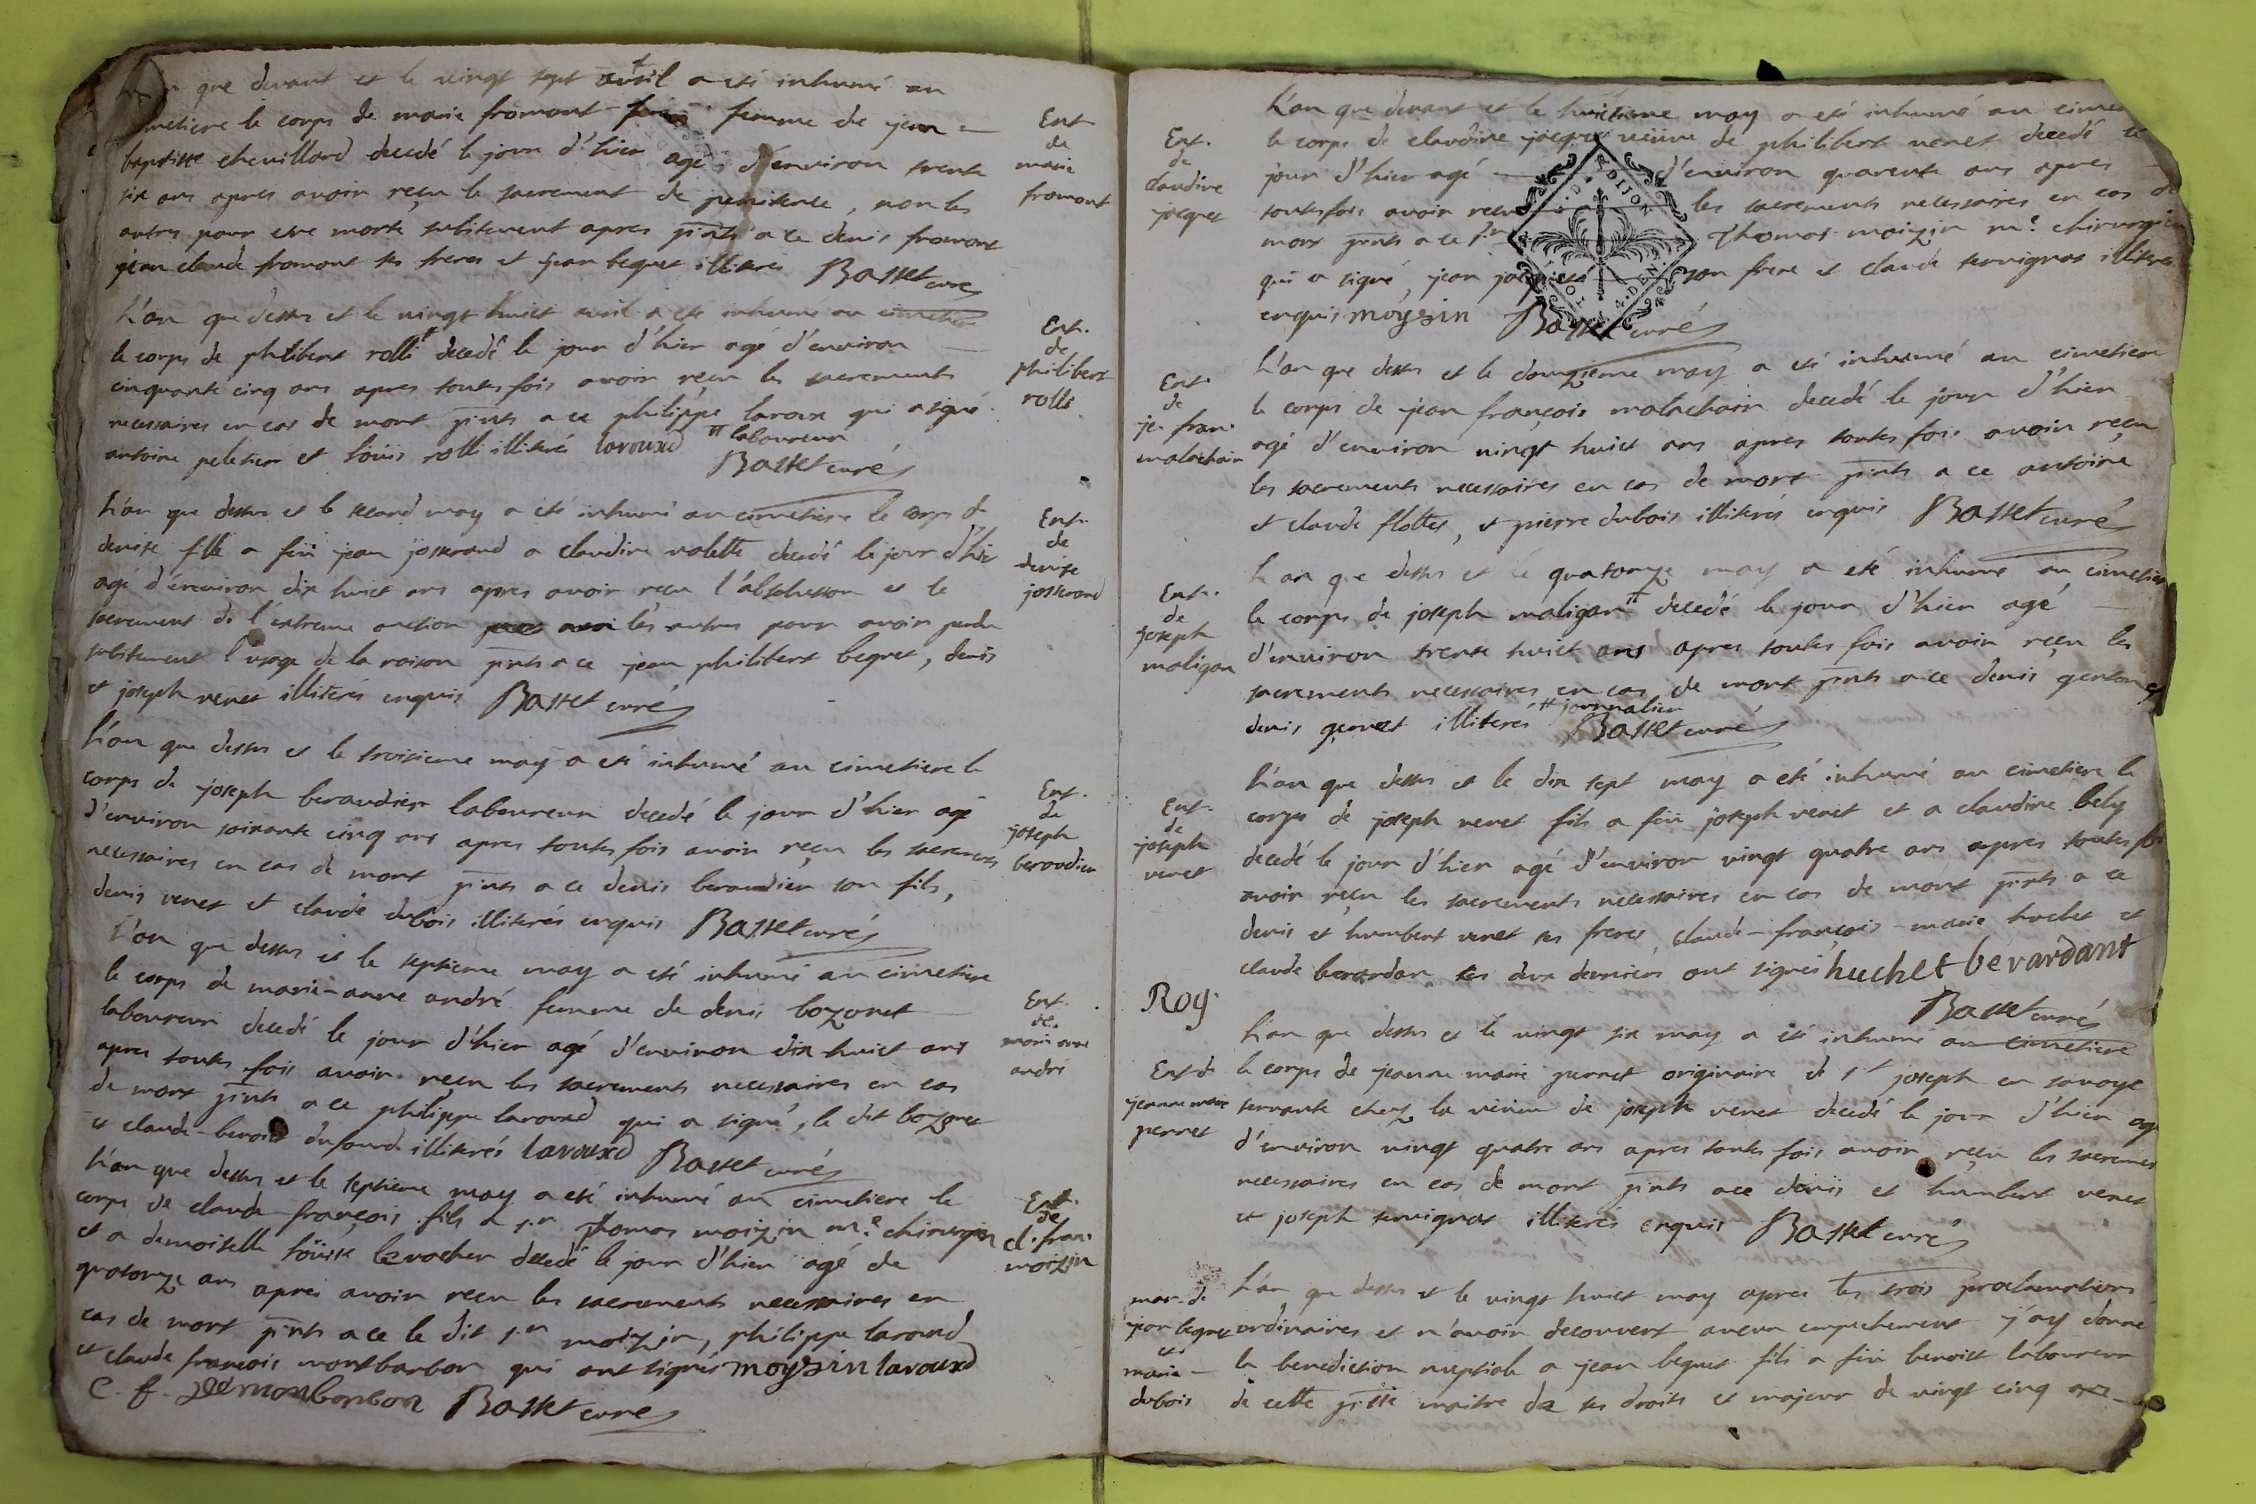 que devant et le vingt sept avril a eté inhumé au
cimetiere le corps de marie fromont femme de jean
baptiste chevillard decedé le jour d'hier agé d'environ trente
six ans apres avoir reçu le sacrement de penitence, non les
autres pour etre morte subitement apres pnts a ce denis fromont
jean claude fromont ses freres et jean beguet illiterés Basset curé
Ent
de
marie
fromont
L'an que dessus et le vingt huict avril a eté inhumé au cimetiere
le corps de philibert rolli decedé le jour d'hier agé d'environ
cinquante cinq ans apres toutes fois avoir reçu les sacrements
necessaires en cas de mort pnts a ce philippe laroux qui a signé
antoine peletier et loüis rolli illiterés larouxd laboureur
Basset curé
Ent.
de
philibert
rolli
L'an que dessus et le second may a eté inhumé au cimetiere le corps de
denise fille a feü jean josserand a claudine valette decedé le jour d'hier
agé d'environ dix huict ans apres avoir reçu l'absolusson et le
sacrement de l'extreme onction les autres pour avoir perdu
subitement l'usage de la raison pnts a ce jean philibert beguet, denis
et joseph venet illiterés enquis Basset curé
Ent.
de
denise
josserand
L'an que dessus et le troisieme may a eté inhumé au cimetiere le
corps de joseph beraudier laboureur decedé le jour d'hier agé
d'environ soixante cinq ans apres toutes fois avoir reçu les sacrements
necessaires en cas de mort pnts a ce denis beraudier son fils,
denis venet et claude dubois illiterés enquis Basset curé
Ent.
de
joseph
beraudier
L'an que dessus et le septieme may a eté inhumé au cimetiere
le corps de marie-anne andré femme de denis bozonet
laboureur decedé le jour d'hier agé d'environ dix huict ans
apres toutes fois avoir reçu les sacrements necessaires en cas
de mort pnts a ce philippe larouxd qui a signé, le dit bozonet
et claude-benoit dufourd illiterés larouxd Basset curé
Ent.
de
marie anne
andré
L'an que dessus et le septieme may a eté inhumé au cimetiere le
corps de claude françois fils a sr thomas moizin me chirurgien
et a demoiselle loüise levacher decedé le jour d'hier agé de
quatorze ans apres avoir reçu les sacrements necessaires en
cas de mort pnts a ce le dit sr moizin, philippe larouxd
et claude françois montbarbon qui ont signés moyzin larouxd
C. f. demonbarbon Basset curé
Ent.
de
cl. fran.
moizin
L'an que devant et le huictieme may a eté inhumé au cime
le corps de claudine jacquet veüve de philibert venet decedé le
jour d'hier agé d'environ quarente ans apres
toutesfois avoir reçu les sacrements necessaires en cas de
mort pnts a ce sr Thomas moizin me chirurgien
qui a signé, jean jacquet son frere et claude servignat illiterés
enquis moyzin Basset curé
DIJON
Ent.
de
claudine
jacquet
L'an que dessus et le douzieme may a eté inhumé au cimetiere
le corps de jean françois malachair decedé le jour d'hier
agé d'environ vingt huict ans apres toutes fois avoir reçu
les sacrements necessaires en cas de mort pnts a ce antoine
et claude flottes, et pierre dubois illiterés enquis Basset curé
Ent.
de
je. fran.
malachair
L'an que dessus et le quatorze may a eté inhumé au cimetiere
le corps de joseph maligan decedé le jour d'hier agé
d'environ trente huict ans apres toutes fois avoir reçu les
sacrements necessaires en cas de mort pnts a ce denis
denis illiterés journalier Basset curé
Ent.
de
joseph
maligan
L'an que dessus et le dix sept may a eté inhumé au cimetiere le
corps de joseph venet fils a feü joseph venet et a claudine bely
decedé le jour d'hier agé d'environ vingt quatre ans apres toutes fois
avoir reçu les sacrements necessaires en cas de mort pnts a ce
denis et humbert venet ses freres, claude-françois-marie huchet et
claude berardan les deux derniers ont signés huchet bérardant
Basset curé
Ent.
de
joseph
venet
Rog.
L'an que dessus et le vingt six may a eté inhumé au cimetiere
le corps de jeanne marie perret originaire de st joseph en savoye
servante chez la veüve de joseph venet decedé le jour d'hier agé
d'environ vingt quatre ans apres toutes fois avoir reçu les sacremens
necessaires en cas de mort pnts a ce denis et humbert venet
et joseph servignat illiterés enquis Basset curé
Ent de
jeanne marie
perret
L'an que dessus et le vingt huict may apres les trois proclamations
ordinaires et n'avoir decouvert aucun empechement j'ay donné
la benediction nuptiale a jean beguet fils a feü benoist laboureur
de cette psse maitre de ses droits et majeur de vingt cinq ans
mar. de
jean beguet
et
marie
dubois